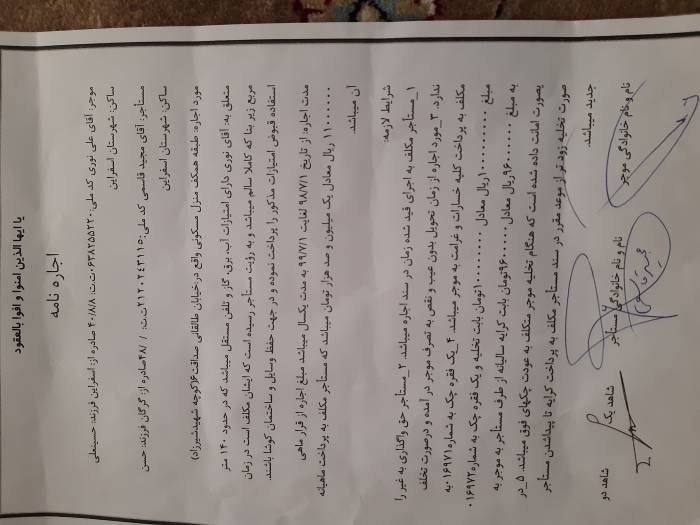 یا ایها الذین امنوا و افوا بالعقود
اجاره نامه
موجر: آقای علی نوری کد ملی:۰۶۳۸۲۵۵۲۲۰ ت.ت: ۴۰/۸/۸ صادره از: اسفراین فرزند: حسینعلی
ساکن: شهرستان اسفراین
مستاجر: آقای مجید قاسمی کد ملی: ۲۱۲۰۲۴۳۱۱۵ ت.ت: / /۴۸صادره از: گرگان فرزند: حسن
ساکن: شهرستان اسفراین
مورد اجاره: طبقه همکف منزل مسکونی واقع در:خیابان طالقانی صداقت۶(کوچه شهیدشیرزاد)
متعلق به: آقای نوری دارای امتیازات آب، برق، گاز و تلفن مستقل میباشد که در حدود ۱۴۰ متر
مربع زیر بنا که کاملا سالم میباشد و به رؤیت مستاجر رسیده است که ایشان مکلف است در زمان
استفاده قبوض امتیازات مذکور را پرداخت نموده و در جهت حفظ وسایل و ساختمان کوشا باشند.
مدت اجاره: از تاریخ ۹۸/۷/۱ لغایت ۹۹/۷/۱ به مدت یکسال میباشد مبلغ اجاره از قرار ماهی
۱۱۰۰۰۰۰۰ ریال معادل یک میلیون و صد هزار تومان میباشد که مستاجر مکلف به پرداخت ماهیانه
آن میباشد.
شرایط لازمه:
۱_مستاجر مکلف به اجرای قید شده زمان در سند اجاره میباشد. ۲_مستاجر حق واگذاری به غیر را
ندارد. ۳_مورد اجاره از زمان تحویل بدون عیب و نقص به تصرف موجر در آمده و درصورت تخلف
مکلف به پرداخت کلیه خسارات و غرامت به موجر میباشد. ۴_یک فقره چک به شماره۰۱۶۹۷۱به
مبلغ ریال معادل تومان بابت تخلیه و یک فقره چک به شماره۰۱۶۹۷۲
به مبلغ ریال معادل تومان بابت کرایه سالیانه از طرف مستاجر به موجر به
صورت امانت داده شده است که هنگام تخلیه موجر متکلف به عودت چکهای فوق میباشد. ۵_در
صورت تخلیه زود تر از موعد مقرر در سند مستاجر مکلف به پرداخت کرایه تا پیداشدن مستاجر
جدید میباشد.
نام و نام خانوادگی موجر نام و نام خانوادگی مستاجر شاهد یک شاهد دو